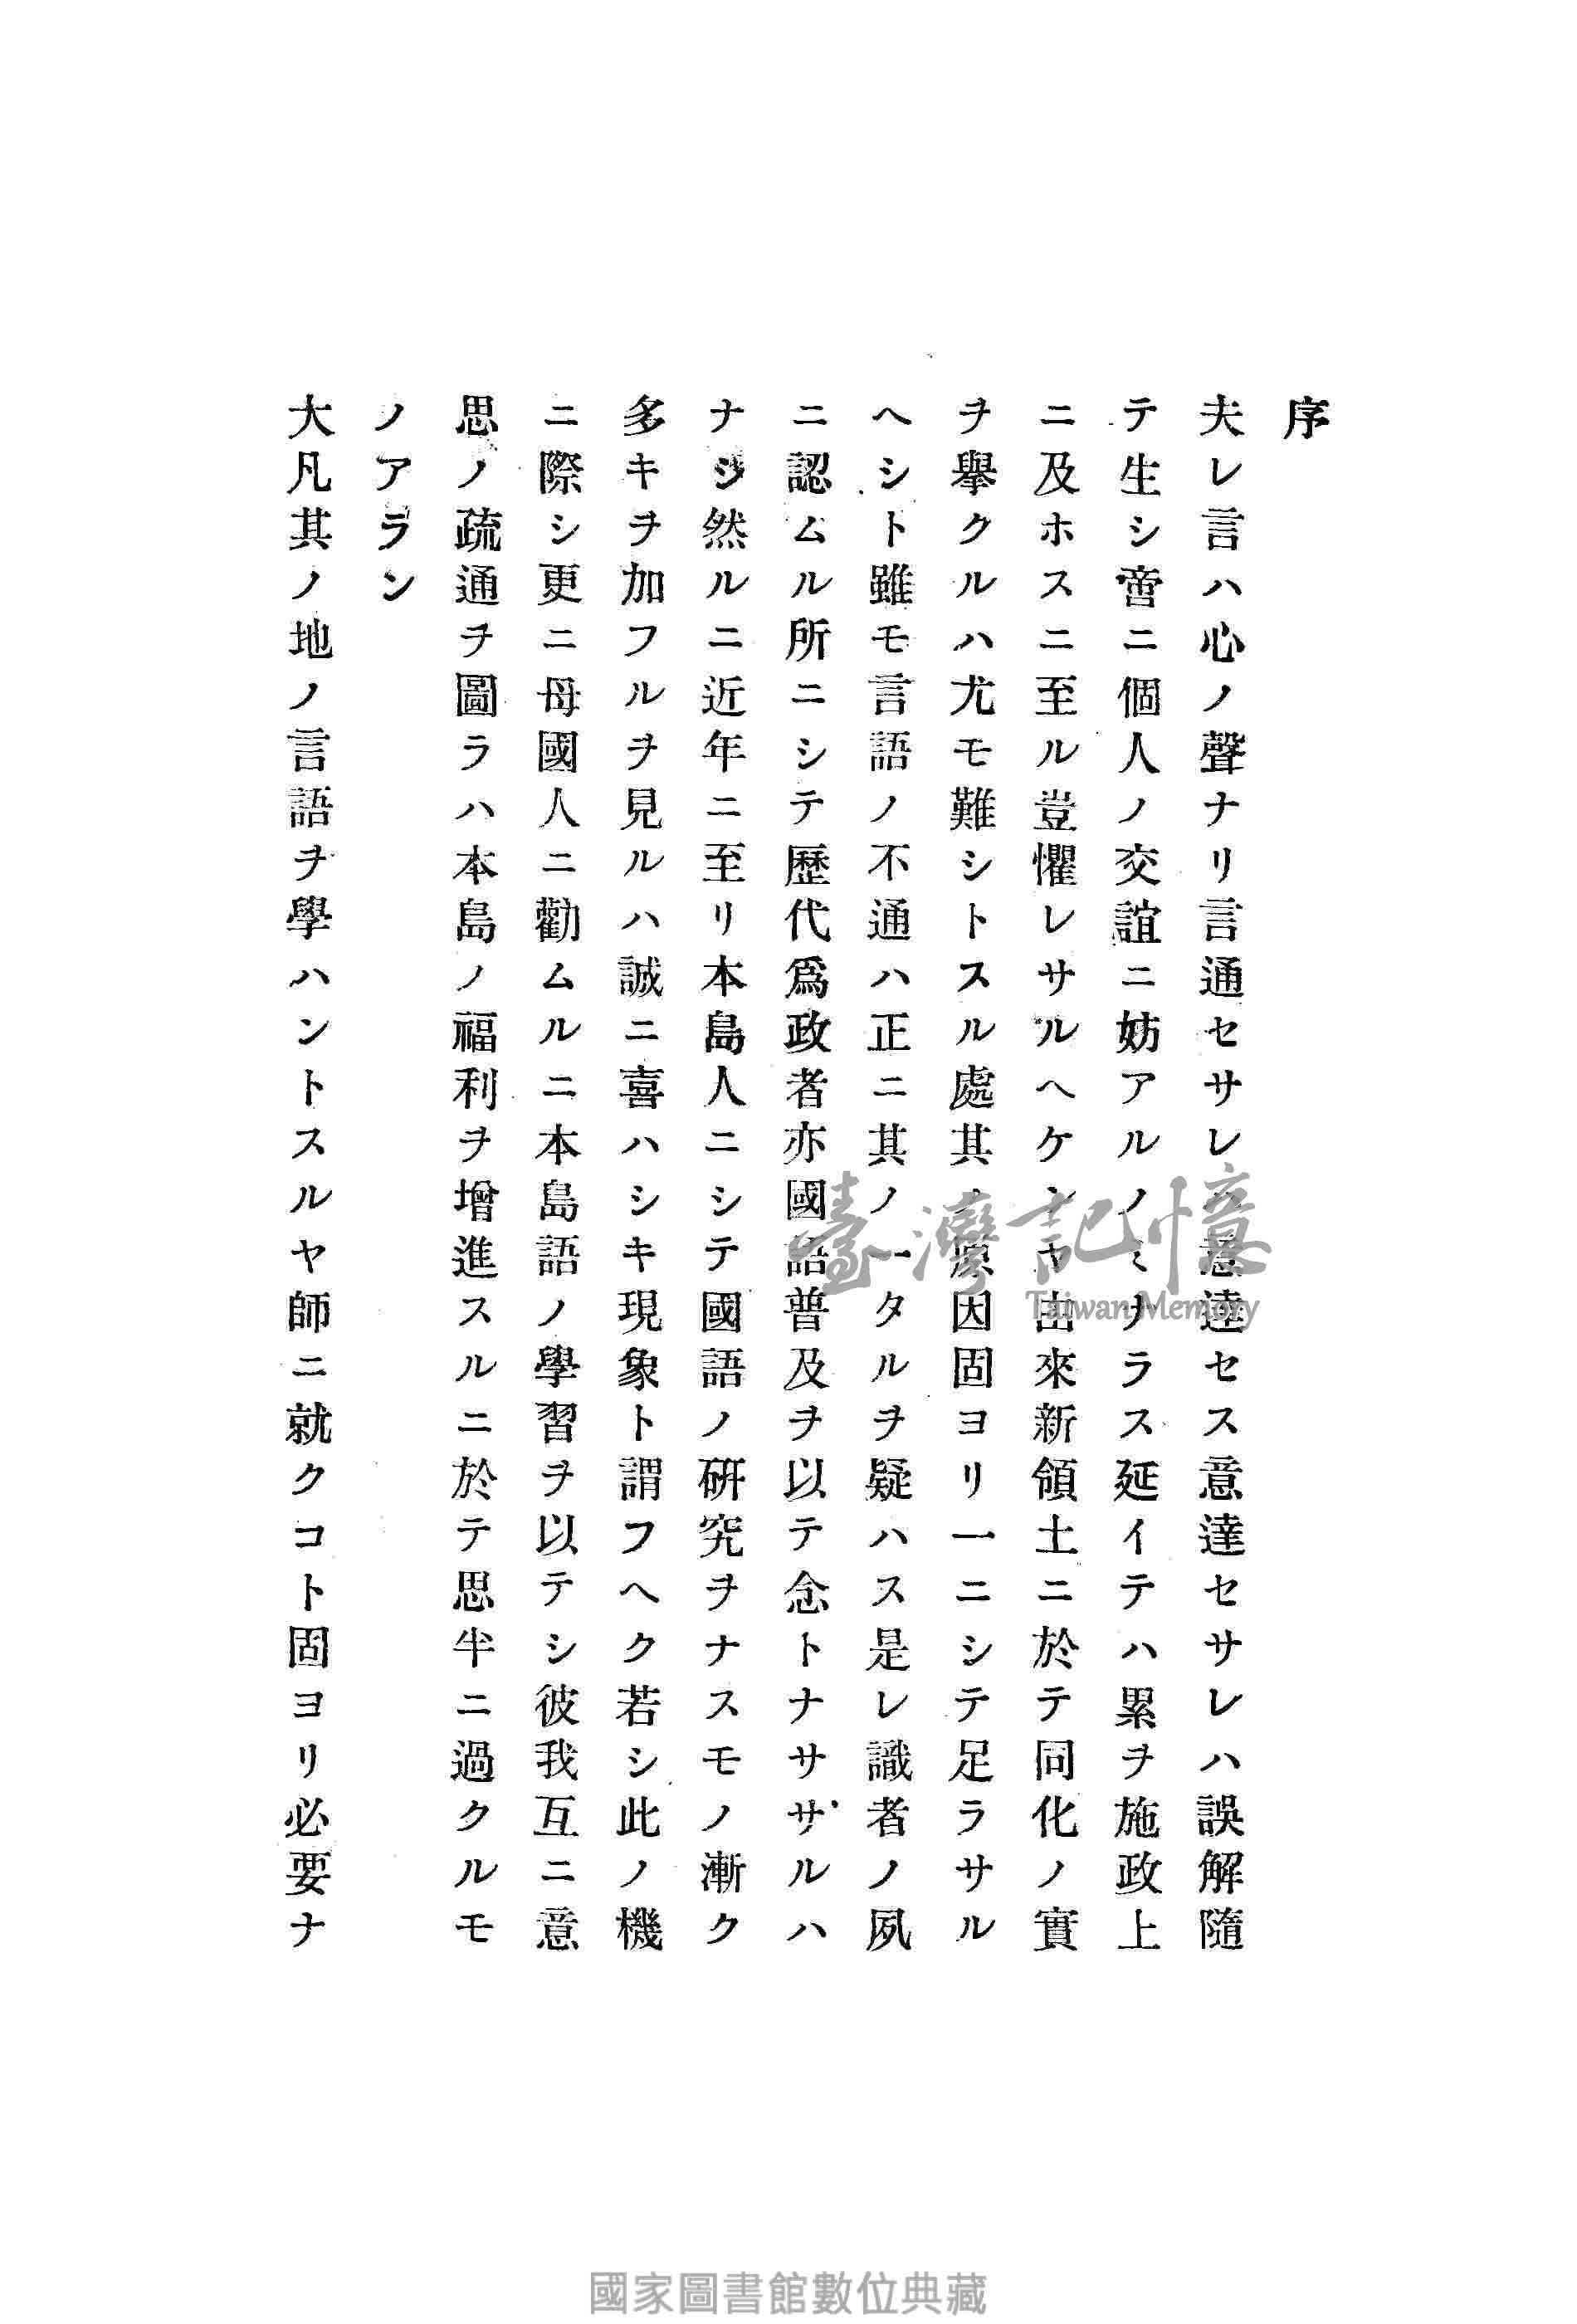 序
夫レ言ハ心ノ聲ナリ言通セサレハ意達セス意達セサレハ誤解隨
テ生シ啻ニ個人ノ交誼ニ妨アルノミナラス延イテハ累ヲ施政上
ニ及ホスニ至ル豈懼レサルヘケンヤ由來新領土ニ於テ同化ノ實
ヲ擧クルハ尤モ難シトスル處其ノ原因固ヨリ一ニシテ足ラサル
ヘシト雖モ言語ノ不通ハ正ニ其ノ一タルヲ疑ハス是レ識者ノ夙
ニ認ムル所ニシテ歷代爲政者亦國語普及ヲ以テ念トナササルハ
ナシ然ルニ近年ニ至リ本島人ニシテ國語ノ硏究ヲナスモノ漸ク
多キヲ加フルヲ見ルハ誠ニ喜ハシキ現象ト謂フヘク若シ此ノ機
ニ際シ更ニ母國人ニ勸ムルニ本島語ノ學習ヲ以テシ彼我互ニ意
思ノ疏通ヲ圖ラハ本島ノ福利ヲ增進スルニ於テ思半ニ過クルモ
ノアラン
大凡其ノ地ノ言語ヲ學ハントスルヤ師ニ就クコト固ヨリ必要ナ
臺灣記憶
Taiwan Memory
國家圖書館數位典藏